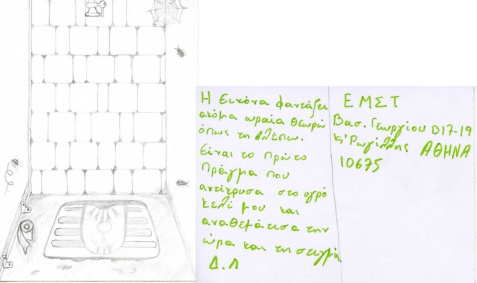 Η εικόνα φαντάζει
ακόμα ωραία θεωρώ
όπως τη βλέπω.
Είναι το πρώτο
πράγμα που
αντίκρυσα στο υγρό
κελί μου και
αναθεμάτισα την
ώρα και τη στιγμή
Δ.Λ
ΕΜΣΤ
Βασ. Γεωργίου Β17-19
& Ρηγίλλης ΑΘΗΝΑ
10675